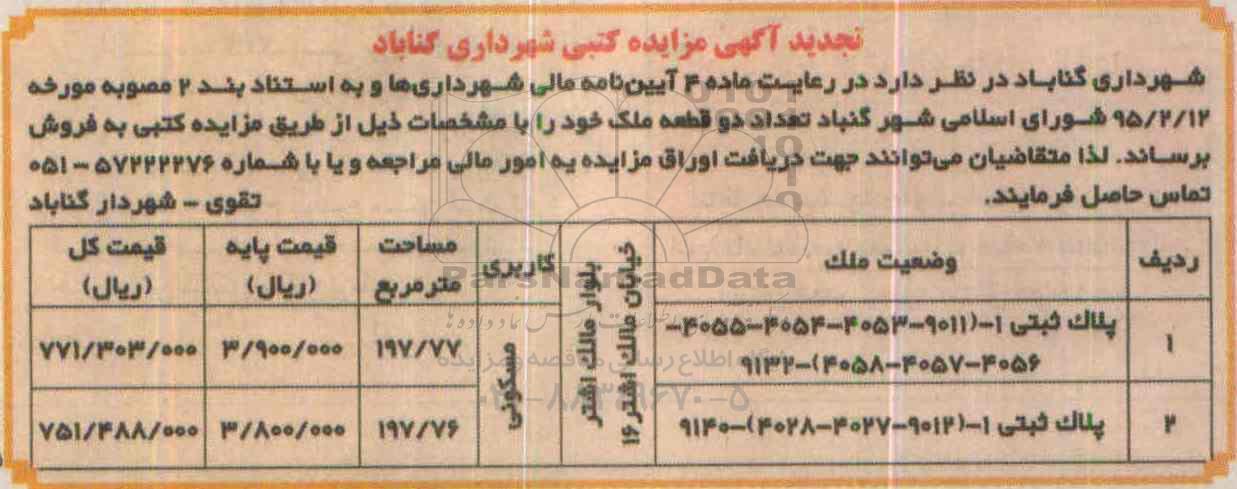 تجدید آگهی مزایده کتبی شهرداری گناباد
شهرداری گناباد در نظر دارد در رعایت ماده ۴ آیین‌نامه مالی شهرداری‌ها و به استناد بند ۲ مصوبه مورخه
۹۵/۲/۱۲ شورای اسلامی شهر گنباد تعداد دو قطعه ملک خود را با مشخصات ذیل از طریق مزایده کتبی به فروش
برساند. لذا متقاضیان می‌توانند جهت دریافت اوراق مزایده به امور مالی مراجعه و یا با شماره ۵۷۲۲۲۲۷۶ - ۰۵۱
تماس حاصل فرمایند.
تقوی - شهردار گناباد
ردیف
وضعیت ملك
خیابان مالك اشتر ۱۶
بلوار مالك اشتر
کاربری
مساحت
مترمربع
قیمت پایه
(ریال)
قیمت کل
(ریال)
۱
پلاك ثبتی ۱-(۹۰۱۱-۴۰۵۳-۴۰۵۴-۴۰۵۵-
۴۰۵۶-۴۰۵۷-۴۰۵۸)-۹۱۳۲
مسکونی
۱۹۷/۷۷
۳/۹۰۰/۰۰۰
۷۷۱/۳۰۳/۰۰۰
۲
پلاك ثبتی ۱-(۹۰۱۲-۴۰۲۷-۴۰۲۸)-۹۱۴۰
۱۹۷/۷۶
۳/۸۰۰/۰۰۰
۷۵۱/۴۸۸/۰۰۰
ParsNamadData
۰۲۱-۸۸۳۴۹۶۷۰-۵